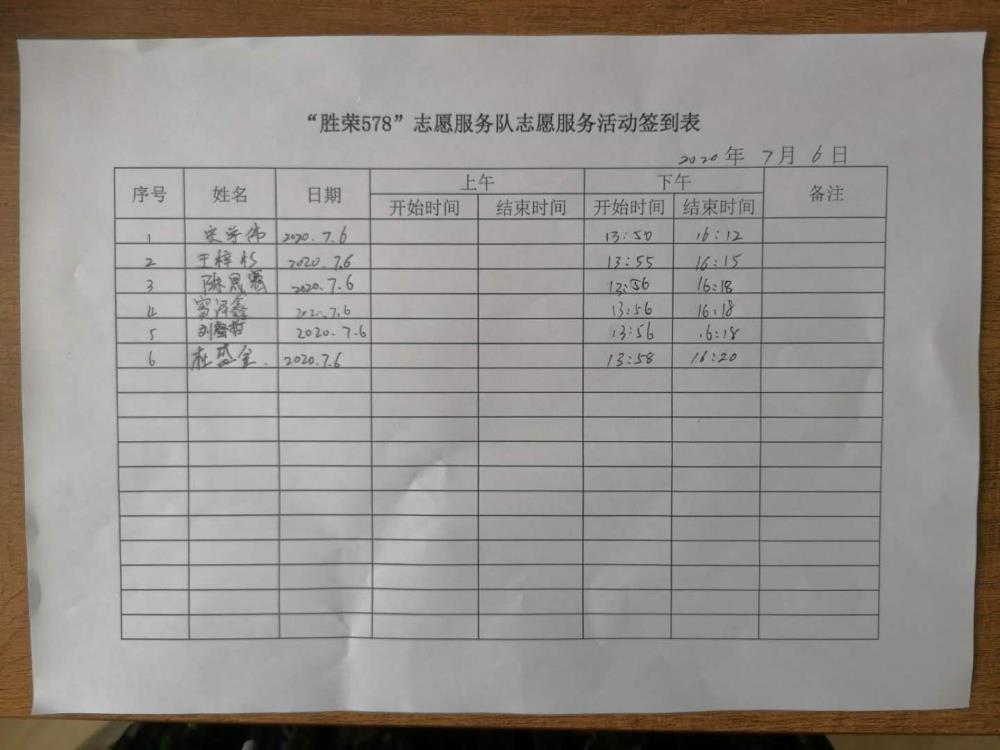 “胜荣578”志愿服务队志愿服务活动签到表
2020年 7月 6日
序号 姓名 日期 上午 下午 备注
开始时间 结束时间 开始时间 结束时间
1 宋宇伟 2020.7.6 13:50 16:12
2 于梓杉 2020.7.6 13:55 16:15
3 陈思 2020.7.6 13:56 16:18
4 泽鑫 2020.7.6 13:56 16:18
5 刘哲 2020.7.6 13:56 16:18
6 杜盛金. 2020.7.6 13:58 16:20